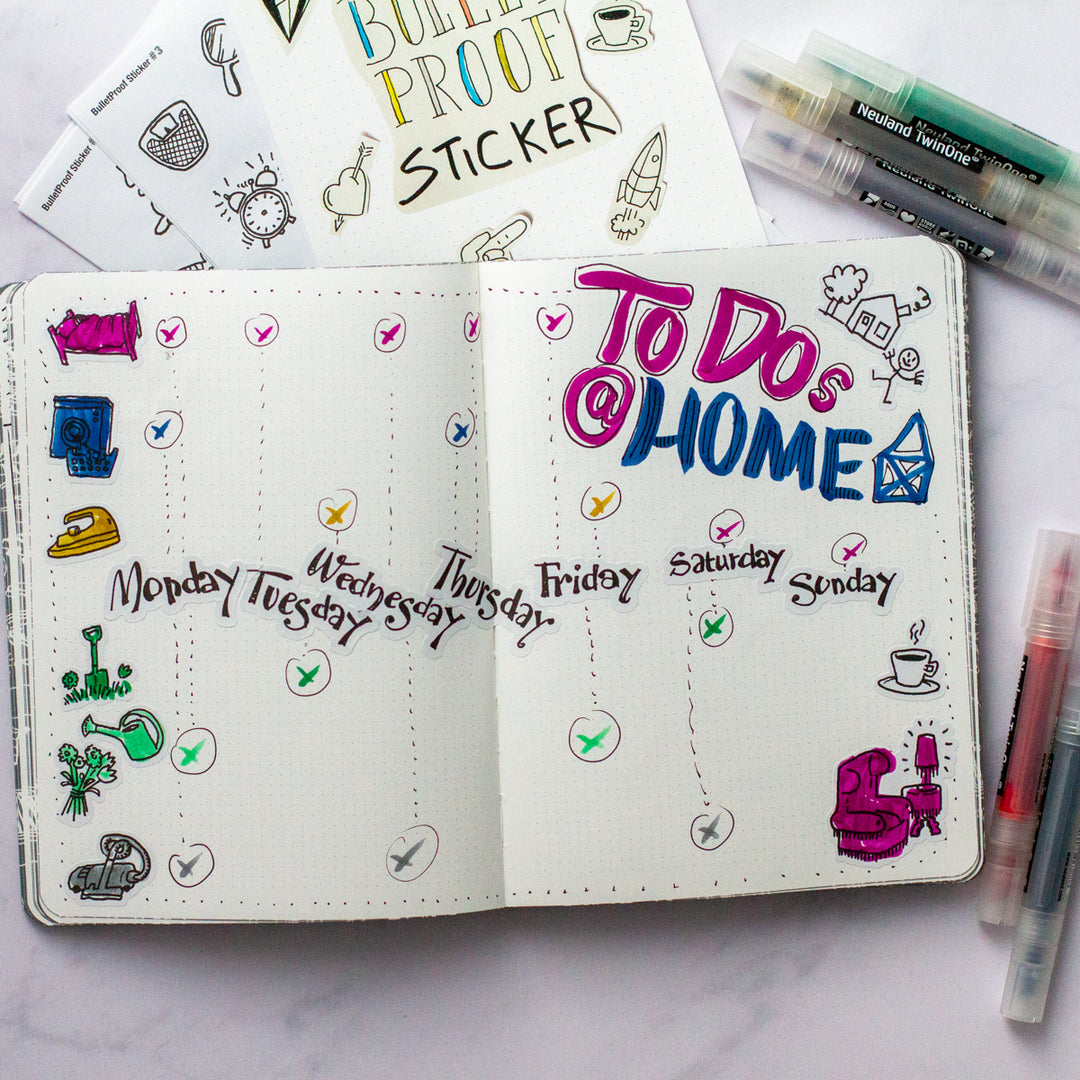 BulletProof Sticker #3
BulletProof Sticker #
BULLET
PROOF
STICKER
Neuland TwinOne®
Neuland TwinOne®
Neuland TwinOne
TO DOs
@HOME
Monday
Tuesday
Wednesday
Thursday
Friday
Saturday
Sunday